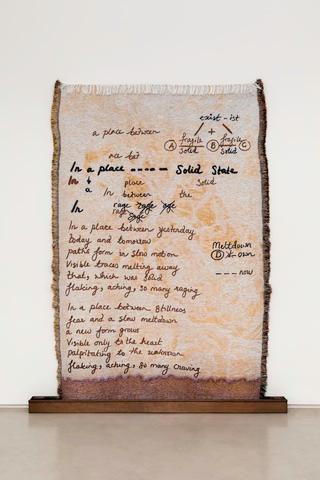 exist - ist
a place between
+
fragile fragile
A Solid B Solid C
nce bet
In a place ----- Solid State
In place Solid
a In between the
In rage age
rage
In a place between yesterday
today and tomorrow
paths form in slow motion
Visible traces melting away
that, which was solid
flaking, aching, so many raging
Meltdown
D
--- now
In a place between Stillness
fear and a slow meltdown
a new form grows
Visible only to the heart
palpitating to the unknown
flaking, aching, so many craving